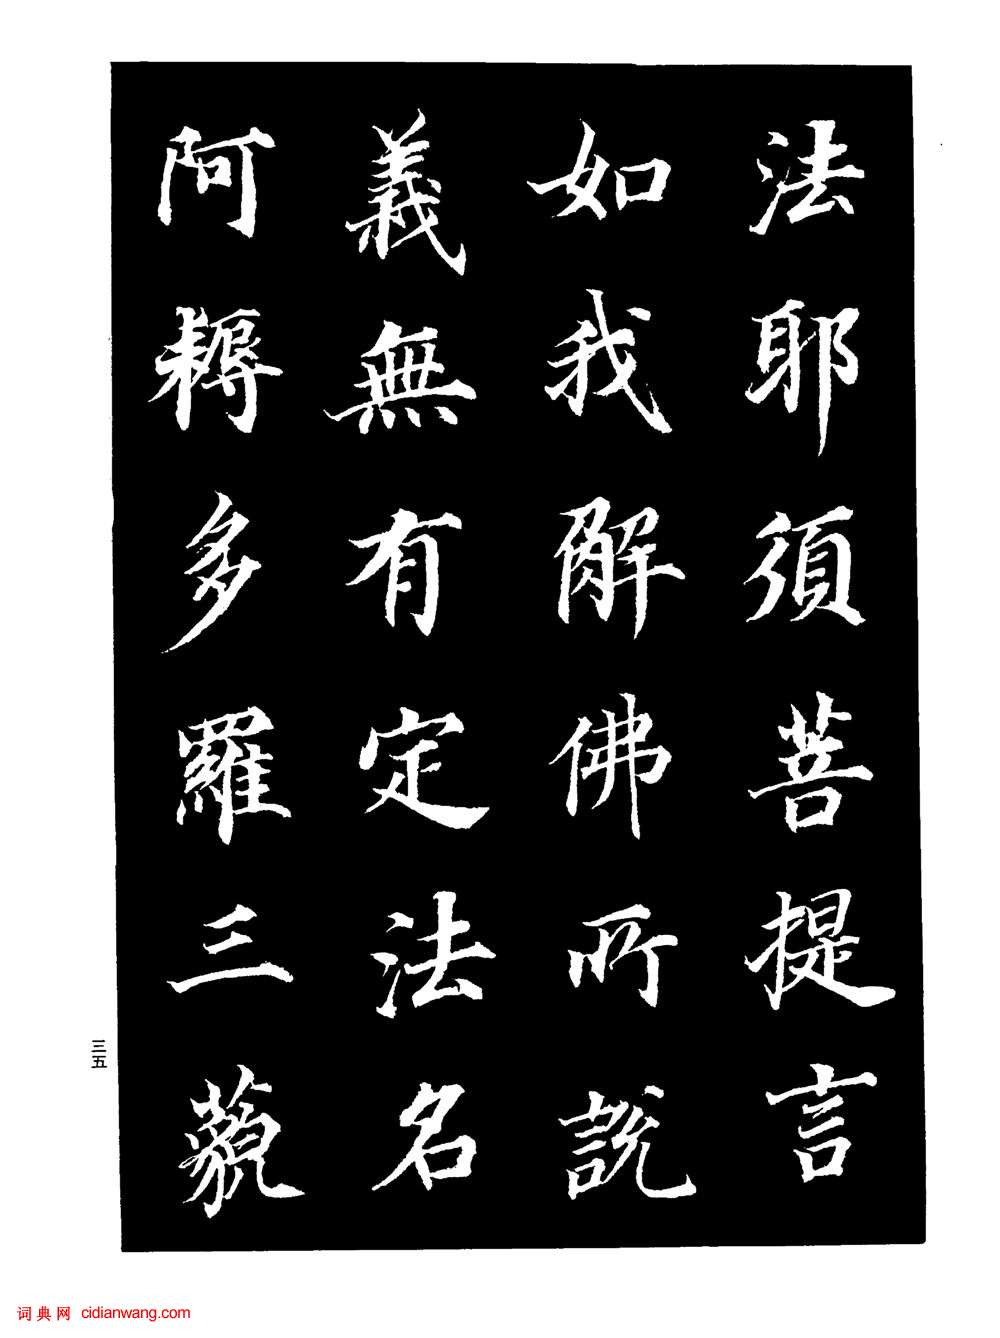 法耶須菩提言
如我解佛所説
義無有定法名
阿耨多羅三藐
三五
词典网 cidianwang.com